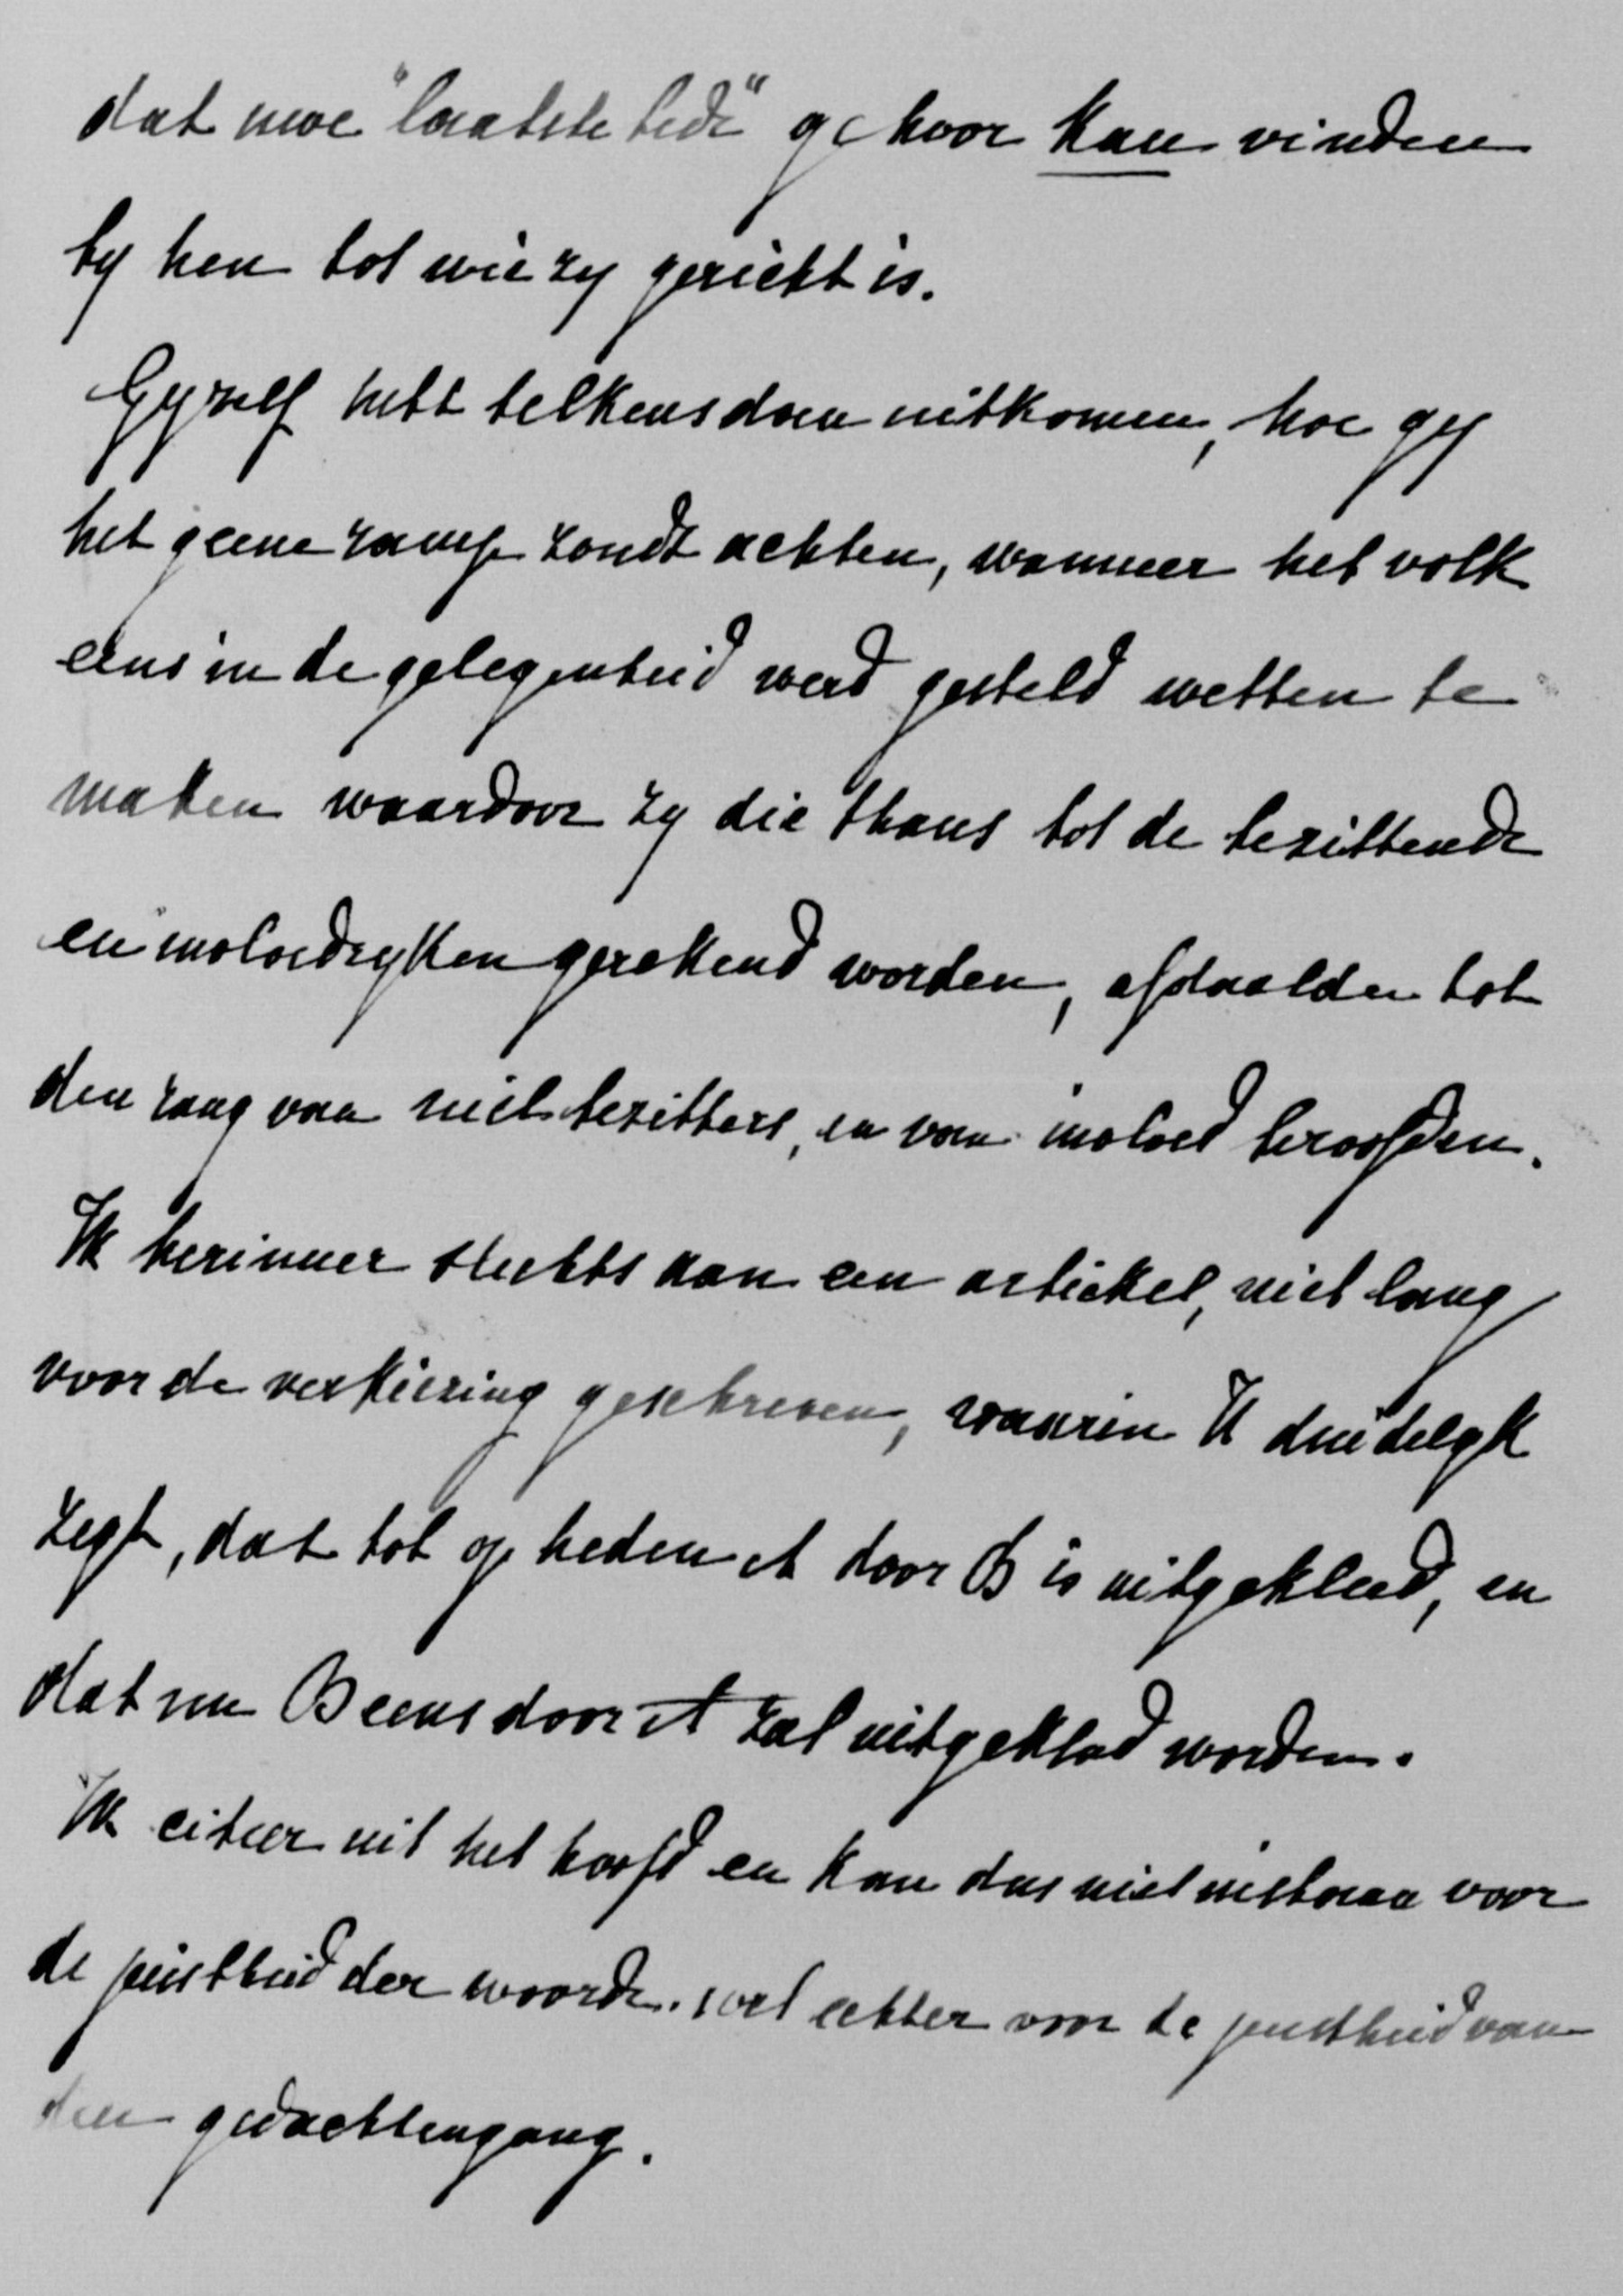 dat uwe "laatste bede" gehoor kan vinden
by hen tot wie zy gericht is.
Gyzelf hebt telkens doen uitkomen, hoe gy
het geene ramp zoudt achten, wanneer het volk
eens in de gelegenheid werd gesteld wetten te
maken waardoor zy die thans tot de bezittende
en invloedryken gerekend worden, afdaalden tot
den rang van niet bezitters, en van invloed beroofden.
Ik herinner slechts aan een artickel, niet lang
voor de verkiezing geschreven, waarin U duidelyk
zegt, dat tot op heden A door B is uitgekleed, en
dat nu B eens door A zal uitgekleed worden.
Ik citeer uit het hoofd en kan dus niet instaan voor
de juistheid der woorden. wel echter voor de juistheid van
den gedachtengang.